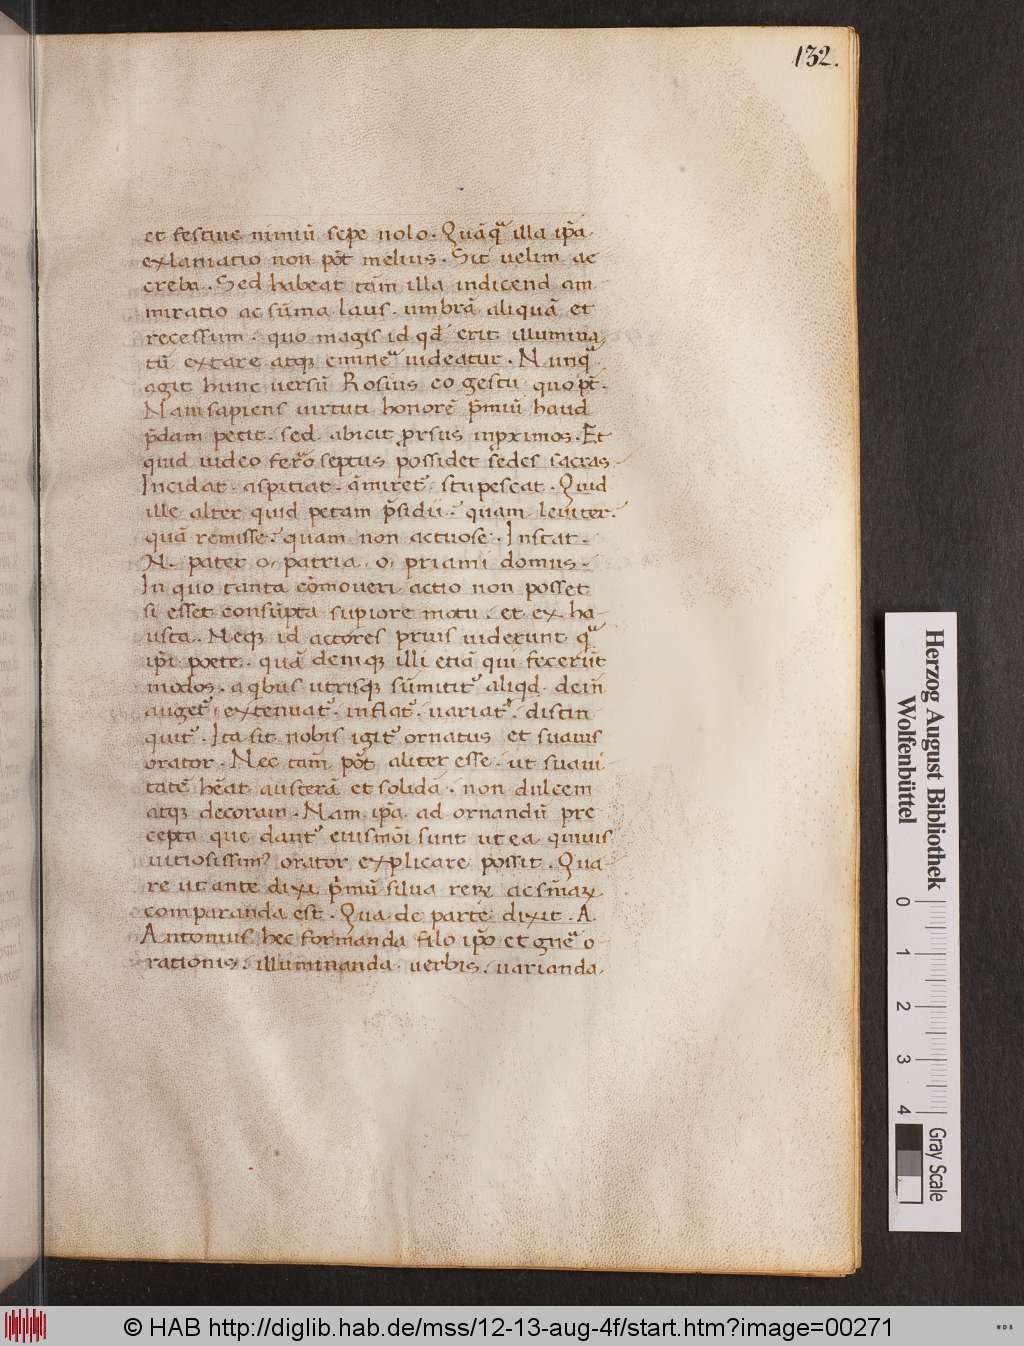 132.
et festiue nimiū sepe nolo. Quāqᵃ illa ip̄a
exlamatio non pōt melius. Sit uelim ae
creba. Sed habeat tām illa indicend am
miratio ac sūma laus. umbrā aliquā et
recessum. quo magis id qđ erit illumina
tū extare atqꝫ emineᵃ uideatur. Nunqᵃ
agit hunc uersū Rosius eo gestu quo pt̄.
Nam sapiens uirtuti honorē p̄miū haud
p̄dam petit. sed abicit prsus inproximos. Et
quid uideo ferro septus possidet sedes sacras.
Incidat. aspitiat. āmiret᷑. stupescat. Quid
ille alter quid petam p̄sidii. quam leuiter.
quā remisse. quam non actuose. Instat.
N. pater o. patria. o. priami domus.
In quo tanta cōmoueri actio non posset
si esset consūpta supiore motu. et ex ha
usta. Neqꝫ id actores prius uiderunt qᵃ
ip̄i poete. quā deniqꝫ illi etiā qui fecerūt
modos. a qbus utrisqꝫ sūmitit᷑ aliqd. dein
auget᷑ extenuat᷑. inflat᷑. uariat᷑. distin
quit᷑. Ita sit nobis igit᷑ ornatus et suauis
orator. Nec tam̄ pōt aliter esse. ut suaui
tatē hēat austerā et solidā. non dulcem
atqꝫ decoram. Nam ip̄a ad ornandū pre
cepta que dant᷑ eiusmōi sunt ut ea quiuis
uitiosissim᷒ orator explicare possit. Qua
re ut ante dixi p̄mū silua reꝝ ac sn̄iaꝝ
comparanda est. Qua de parte dixit. A.
Antonius hec formanda filo ip̄o et gn̄eᵃ o
rationis. illuminanda uerbis. uarianda
Herzog August Bibliothek
Wolfenbüttel
0 1 2 3 4
Gray Scale
© HAB http://diglib.hab.de/mss/12-13-aug-4f/start.htm?image=00271